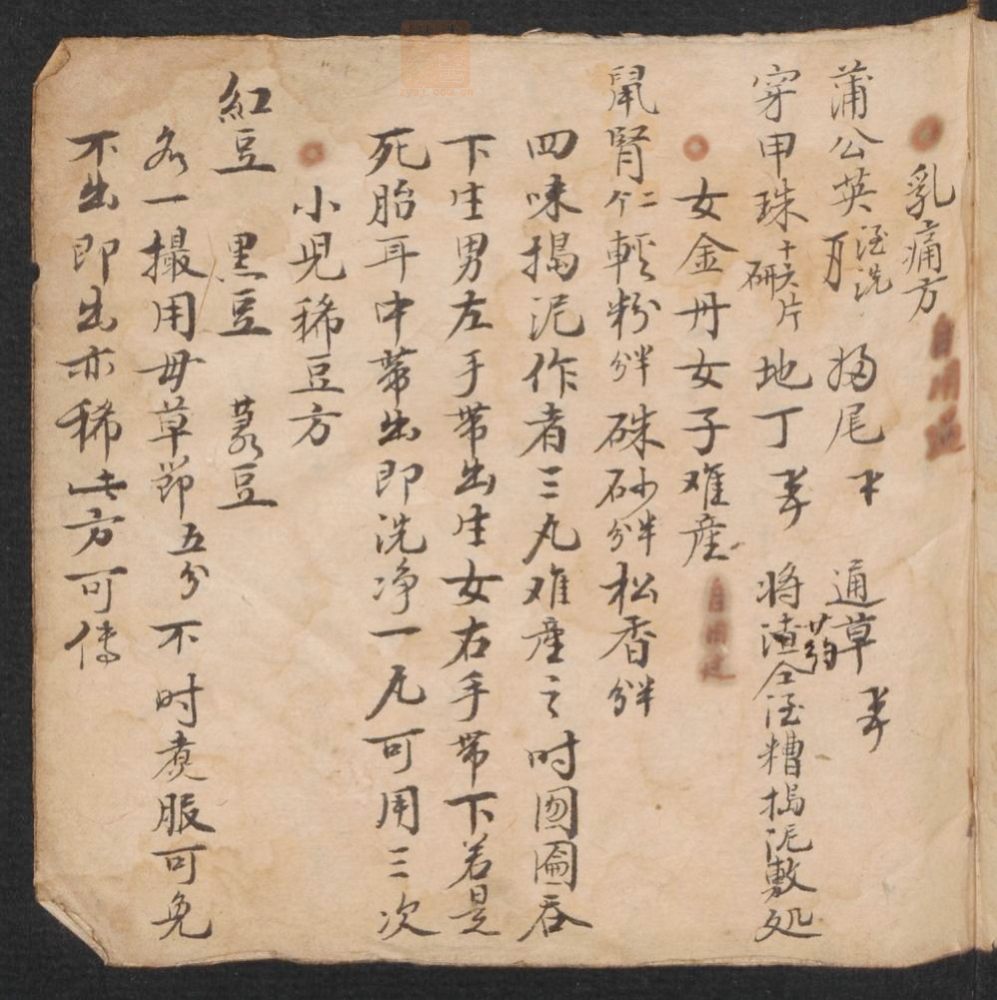 乳痛方
蒲公英 洗 归尾 通草
穿甲珠 十六片 研 地丁 将渣 药 糟捣泥敷处
女金丹女子难產
鼠腎 仁 輕粉 硃砂 松香
四味捣泥作者三丸难產之时囫圇吞
下生男左手带出生女右手带下若是
死胎耳中带出即洗净一丸可用三次
小児稀豆方
紅豆 黒豆 菉豆
各一撮用毋草節五分不时煮服可免
不出即出亦稀此方可传